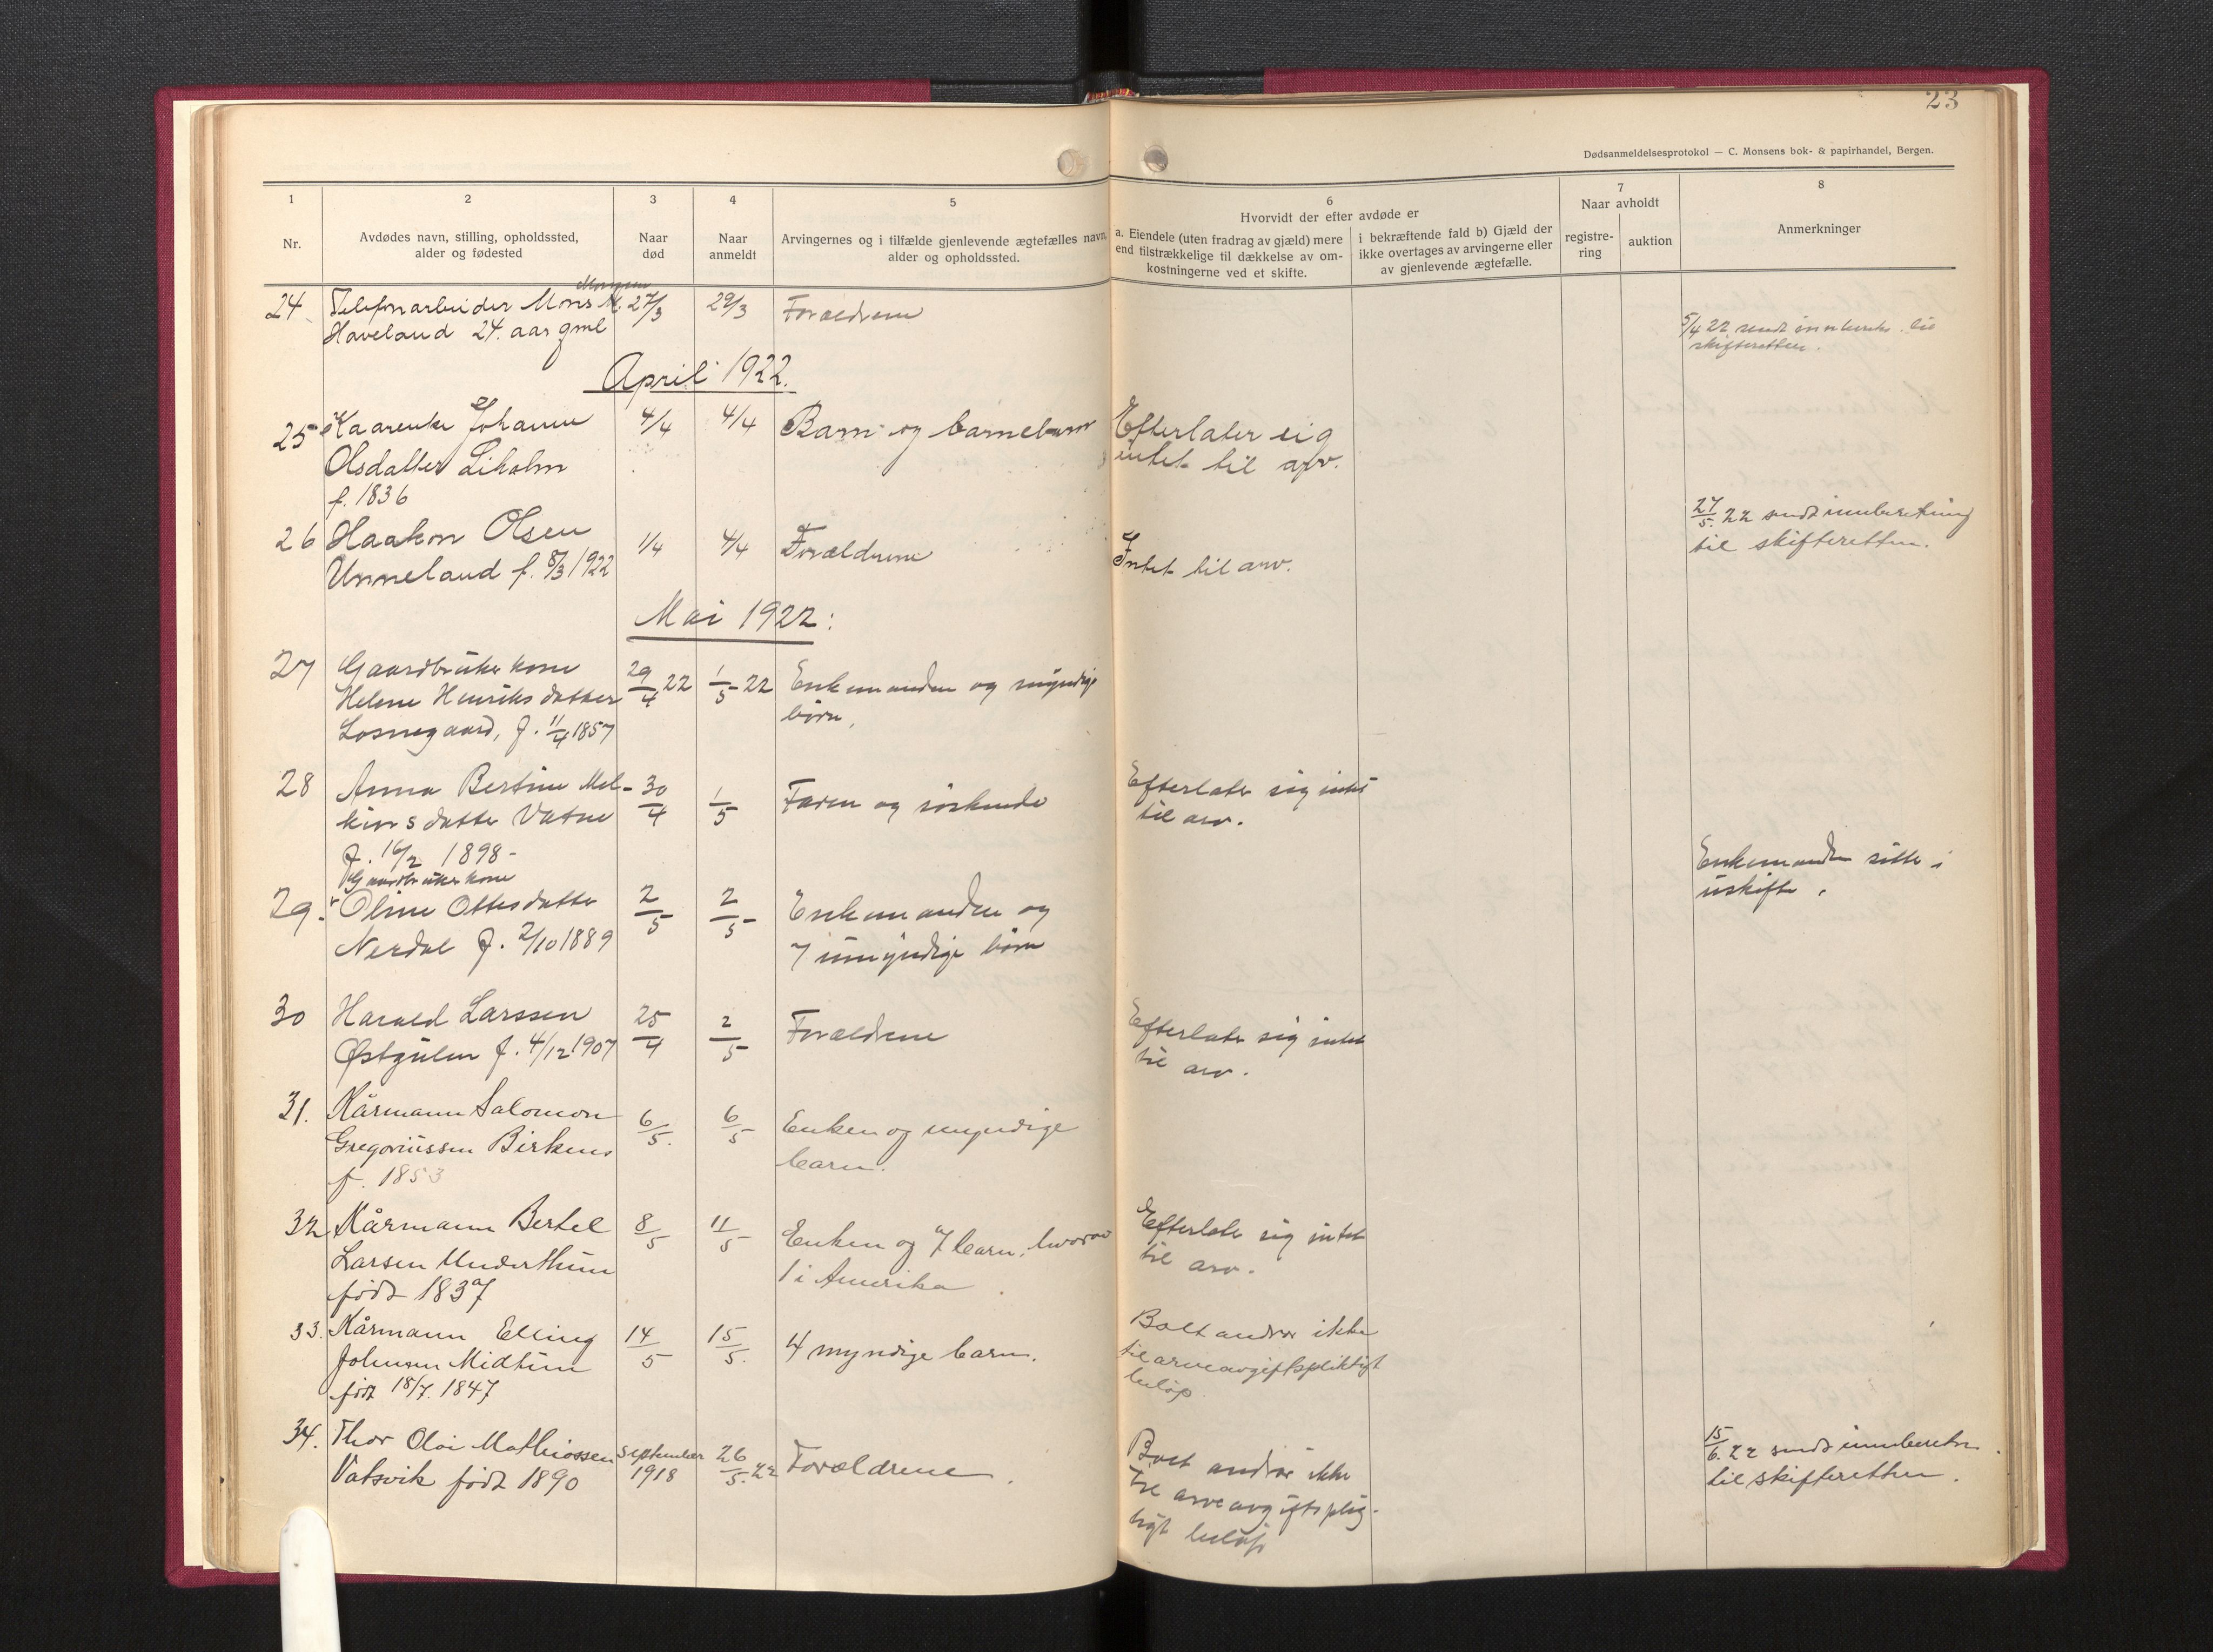 23
Dødsanmeldelsesprotokol — C. Monsens bok- & papirhandel, Bergen.
1
2
3
4
5
6
7
8
Nr.
Avdødes navn, stilling, opholdssted,
alder og fødested
Naar
død
Naar
anmeldt
Arvingernes og i tilfælde gjenlevende ægtefælles navn,
alder og opholdssted.
Hvorvidt der efter avdøde er
a. Eiendele (uten fradrag av gjæld) mere
end tilstrækkelige til dækkelse av om-
kostningerne ved et skifte.
i bekræftende fald b) Gjæld der
ikke overtages av arvingerne eller
av gjenlevende ægtefælle.
Naar avholdt
registre-
ring
auktion
Anmerkninger
24 Telefonarbeider Mons M. 27/3 29/3 Forældrene
Haveland 24. aar gml
5/4 22 sendt innberetn. til
skifteretten.
April 1922.
25 Kaarenke Johanne 4/4 4/4 Barn og barnebarn Efterlater sig
Olsdatter Liholm intet til arv.
f. 1836
26 Haakon Olsen 1/4 4/4 Forældrene Intet til arv.
Unneland f. 8/3 1922
27/5. 22 sendt innberetning
til skifteretten.
Mai 1922:
27 Gaardbrukerkone 29/4 22 1/5 22 Enkemanden og myndige
Helene Henriksdatter børn.
Losnegaard, f. 11/4 1857
28 Anna Bertine Mel- 30/4 1/5 Faren og søskende Efterlater sig intet
kiorsdatter Vatne til arv.
f. 16/2 1898-
Gaardbrukerkone
29. Oline Ottesdatter 2/5 2/5 Enkemanden og
Nerdal f. 2/10 1889 7 umyndige børn
Enkemanden sitter i
uskifte.
30 Harald Larssen 25/4 2/5 Forældrene Efterlater sig intet
Østgulen f. 4/12 1907 til arv.
31. Kårmann Salomon 6/5. 6/5 Enken og myndige
Gregoriussen Birkenes barn.
f. 1853
32 Kårmann Bertel 8/5 11/5 Enken og 7 barn, hvorav Efterlater sig intet
Larsen Underthun 1 i Amerika til arv.
født 1837
33. Kårmann Elling 14/5 15/5. 4 myndige barn. Boet andrar ikke
Johnsen Midtun til arveavgiftspliktigt
født 18/7. 1847 beløp
34. Thor Olai Mathiassen September 26/5. 22 Forældrene. Boet andrar ikke
Vatsvik født 1890 1918 til arveavgiftsplig-
tigt beløp
15/6. 22 sendt innberetn.
til skifteretten.